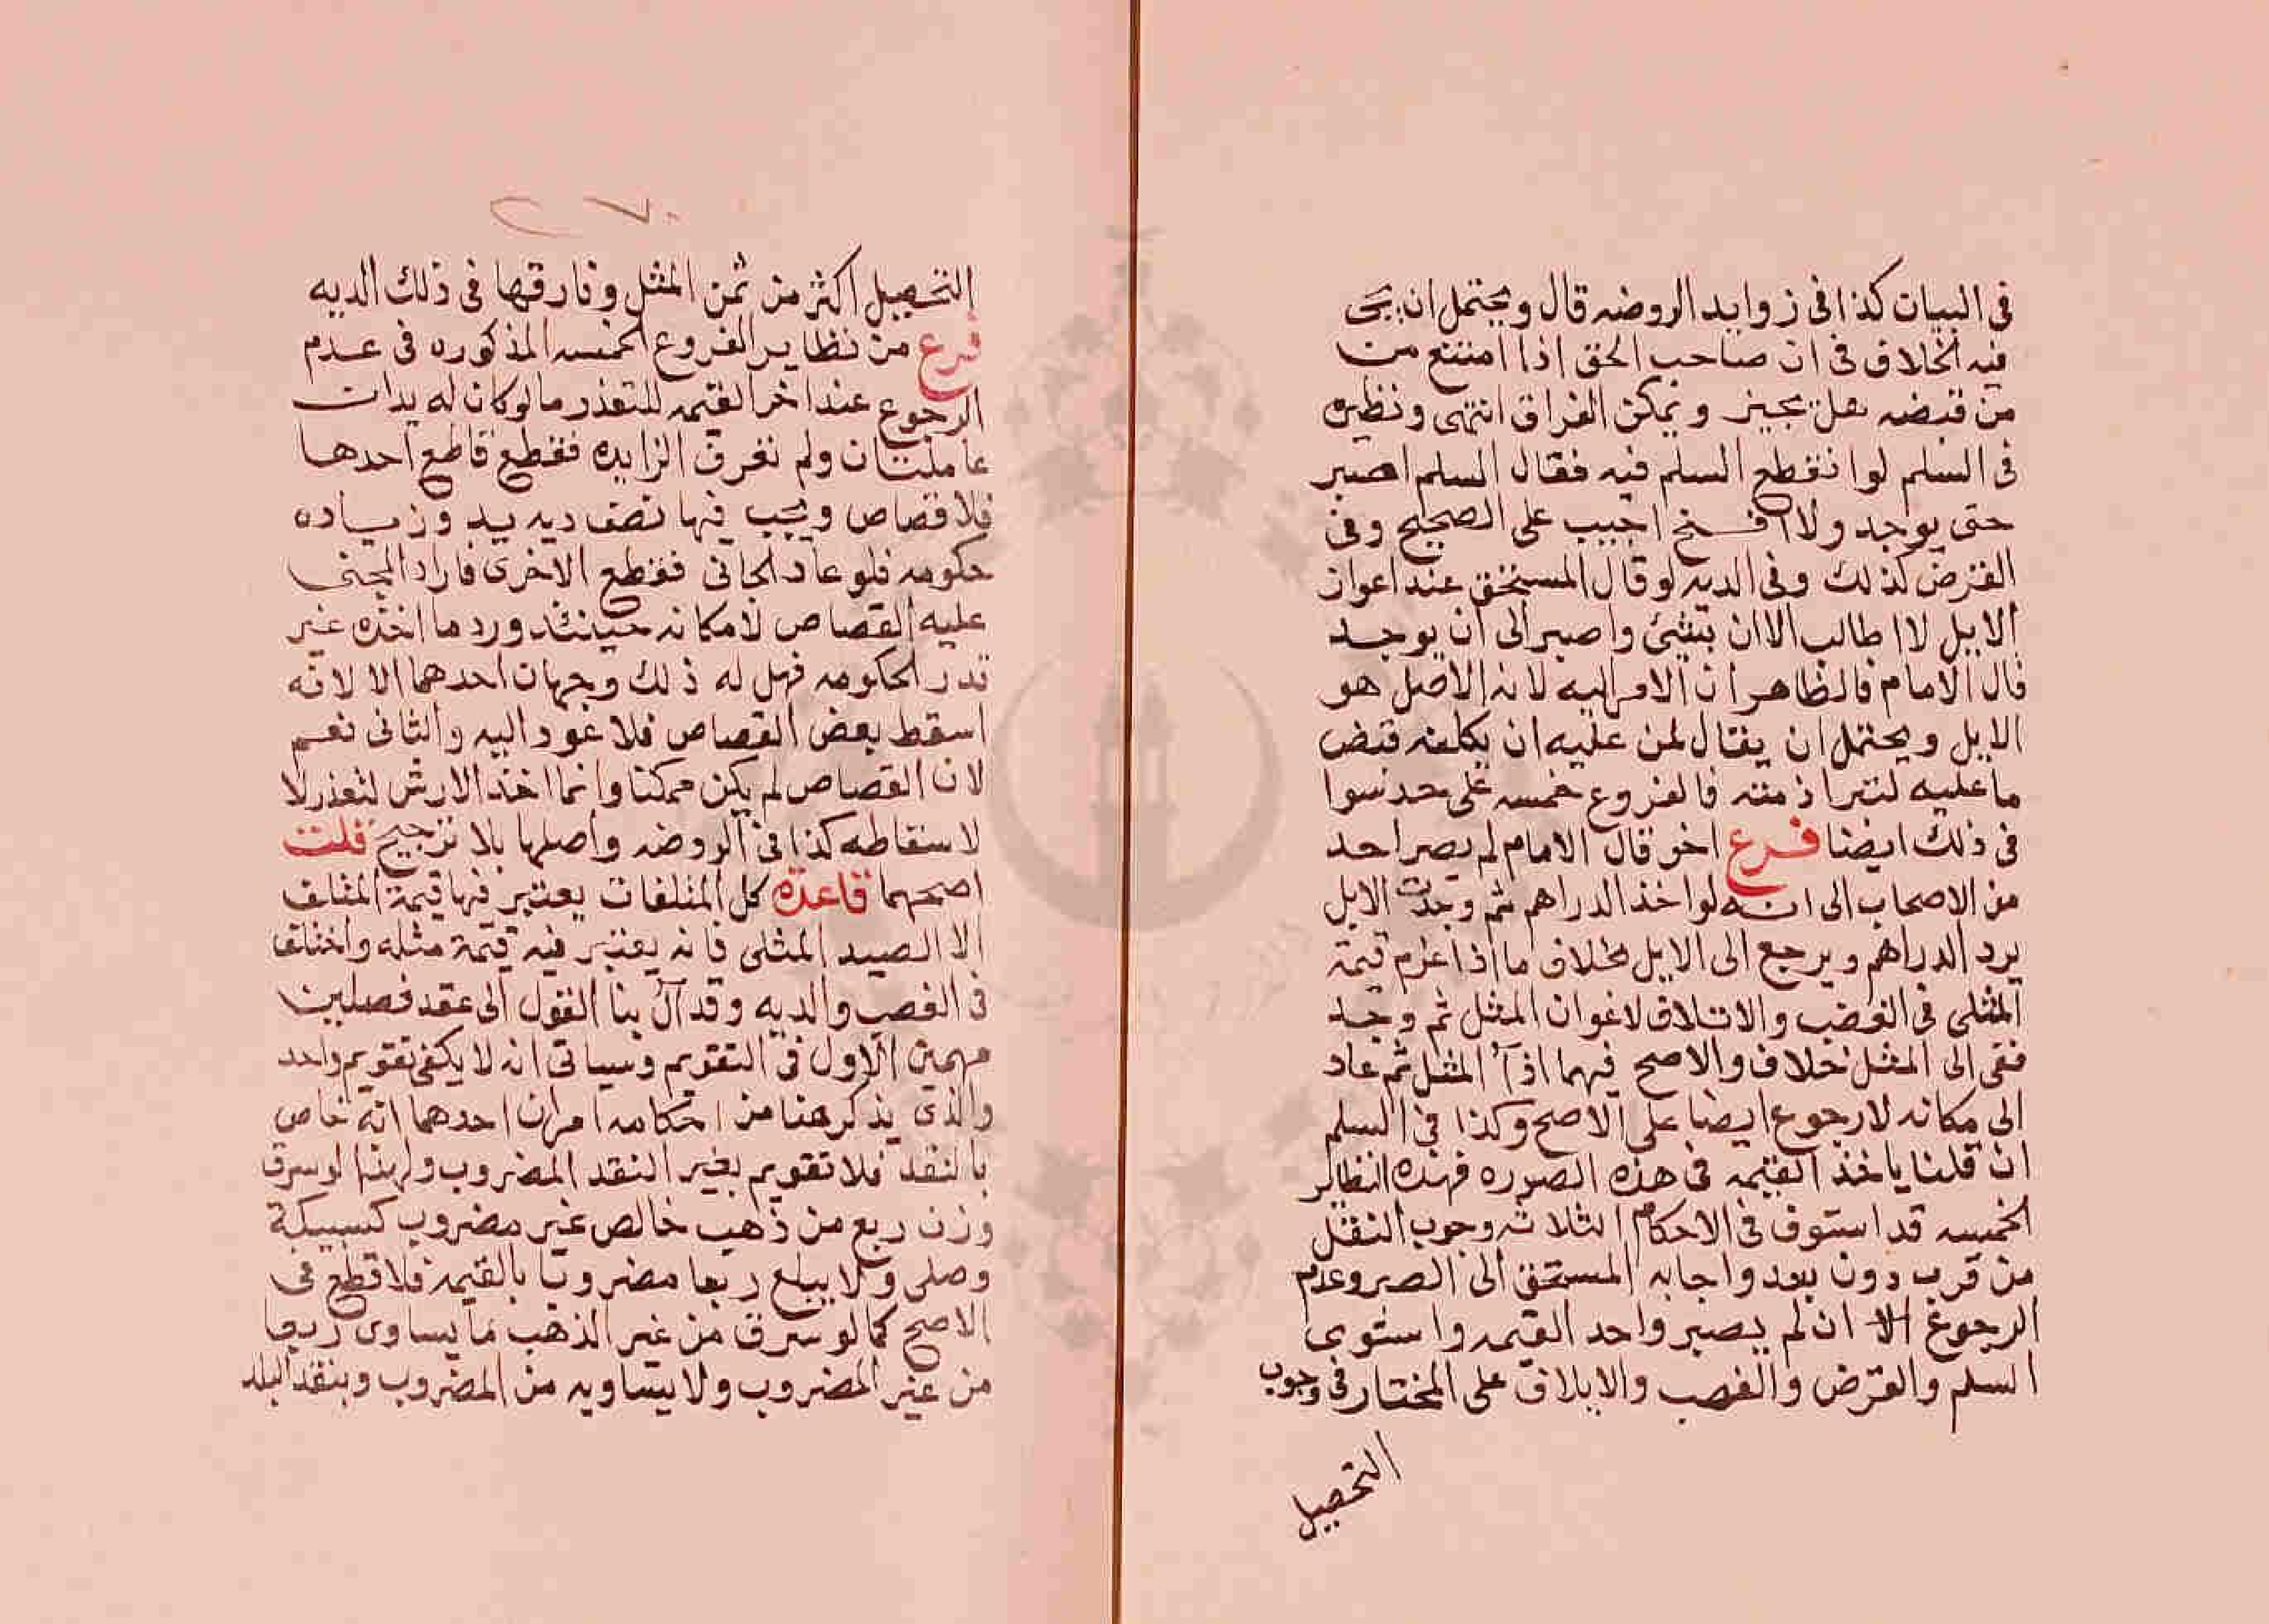 في البيان كذا في زوايد الروضه قال ويحتمل ان يجي
فيه الخلاف في ان صاحب الحق اذا امتنع من
من قبضه هل يجبر ويمكن الفراق انتهى ونظيره
في السلم لو انقطع السلم فيه فقال المسلم اصبر
حتى يوجد ولا افسخ اجيب على الصحيح وفي
القرض كذلك وفي الديه لو قال المستحق عند اعواز
الابل لا اطالب الان بشئ واصبر الى ان يوجد
قال الامام فالظاهر ان الامر اليه لانه الاصل هو
الابل ويحتمل ان يقال لمن عليه ان يكلفه قبض
ما عليه لتبرا ذمته فالفروع خمسه على حد سوا
في ذلك ايضا فرع اخر قال الامام لم يصر احد
من الاصحاب الى انه لو اخذ الدراهم ثم وجدت الابل
يرد الدراهم ويرجع الى الابل بخلاف ما اذا غرم قيمة
المثلى في الغصب والاتلاف لاعواز المثل ثم وجد
ففي المثل خلاف والاصح فيهما اذا المثل ثم عاد
الى مكانه لا رجوع ايضا على الاصح وكذا في السلم
ان قلنا ياخذ القيمه في هذه الصوره فهذه النظاير
الخمسه قد استوف في الاحكام الثلاثه وجوب النقل
من قرب دون بعد واجابه المستحق الى الصبر وعدم
الرجوع الا ان لم يصبر واخد القيمه واستوى
السلم والقرض والغصب والاتلاف على المختار في وجوب
التحصيل
التحصيل اكثر من ثمن المثل وفارقها في ذلك الديه
فرع من نظاير الفروع الخمسه المذكوره في عدم
الرجوع عند اخر القيمه للتعذر ما لو كان له يدان
عاملتان ولم نعرف الزايده فقطع قاطع احدها
فلا قصاص ويجب فيها نصف ديه يد وزياده
حكومه فلو عاد الجاني فقطع الاخرى فاراد المجني
عليه القصاص لامكانه حينئذ ورد ما اخذه غير
قدر الحكومه فهل له ذلك وجهان احدهما لا لانه
اسقط بعض القصاص فلا عود اليه والثاني نعم
لان القصاص لم يكن ممكنا وانما اخذ الارش لتعذر لا
لاسقاطه كذا في الروضه واصلها بلا ترجيح قلت
اصحهما قاعدة كل المتلفات يعتبر فيها قيمة المتلف
الا الصيد المثلي فانه يعتبر فيه قيمة مثله واختلف
في الغصب والديه وقد آل بنا القول الى عقد فصلين
مهمين الاول في التقويم وسياتي انه لا يكفي تقويم واحد
والذي يذكر هنا من احكامه امران احدهما انه خاص
بالنقد فلا تقويم بغير النقد المضروب ولهذا لو سرق
وزن ربع من ذهب خالص غير مضروب كسبيكة
وحلى ولا يبلغ ربعا مضروبا بالقيمه فلا قطع في
الاصح كما لو سرق من غير الذهب ما يساوي ربعا
من غير المضروب ولا يساويه من المضروب وبنقد البلد